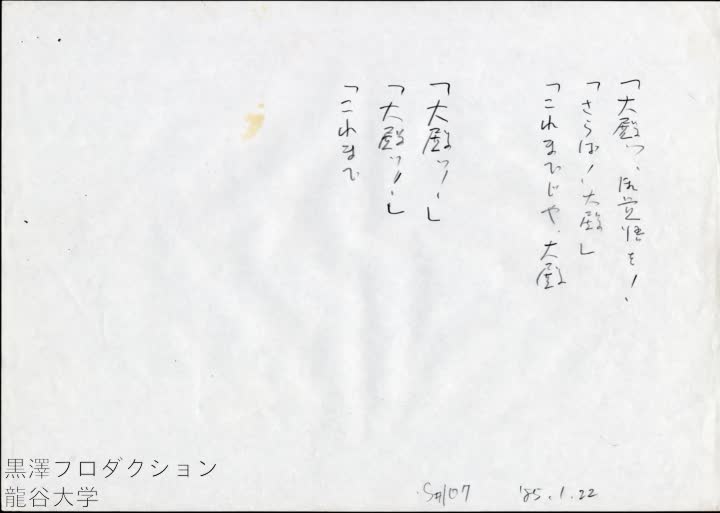 「大殿ッ、御覚悟を!
「さらば!大殿」
「これまでじゃ、大殿
「大殿ッ!」
「大殿ッ!」
「これまで
S#107 '85.1.22
黒澤プロダクション
龍谷大学